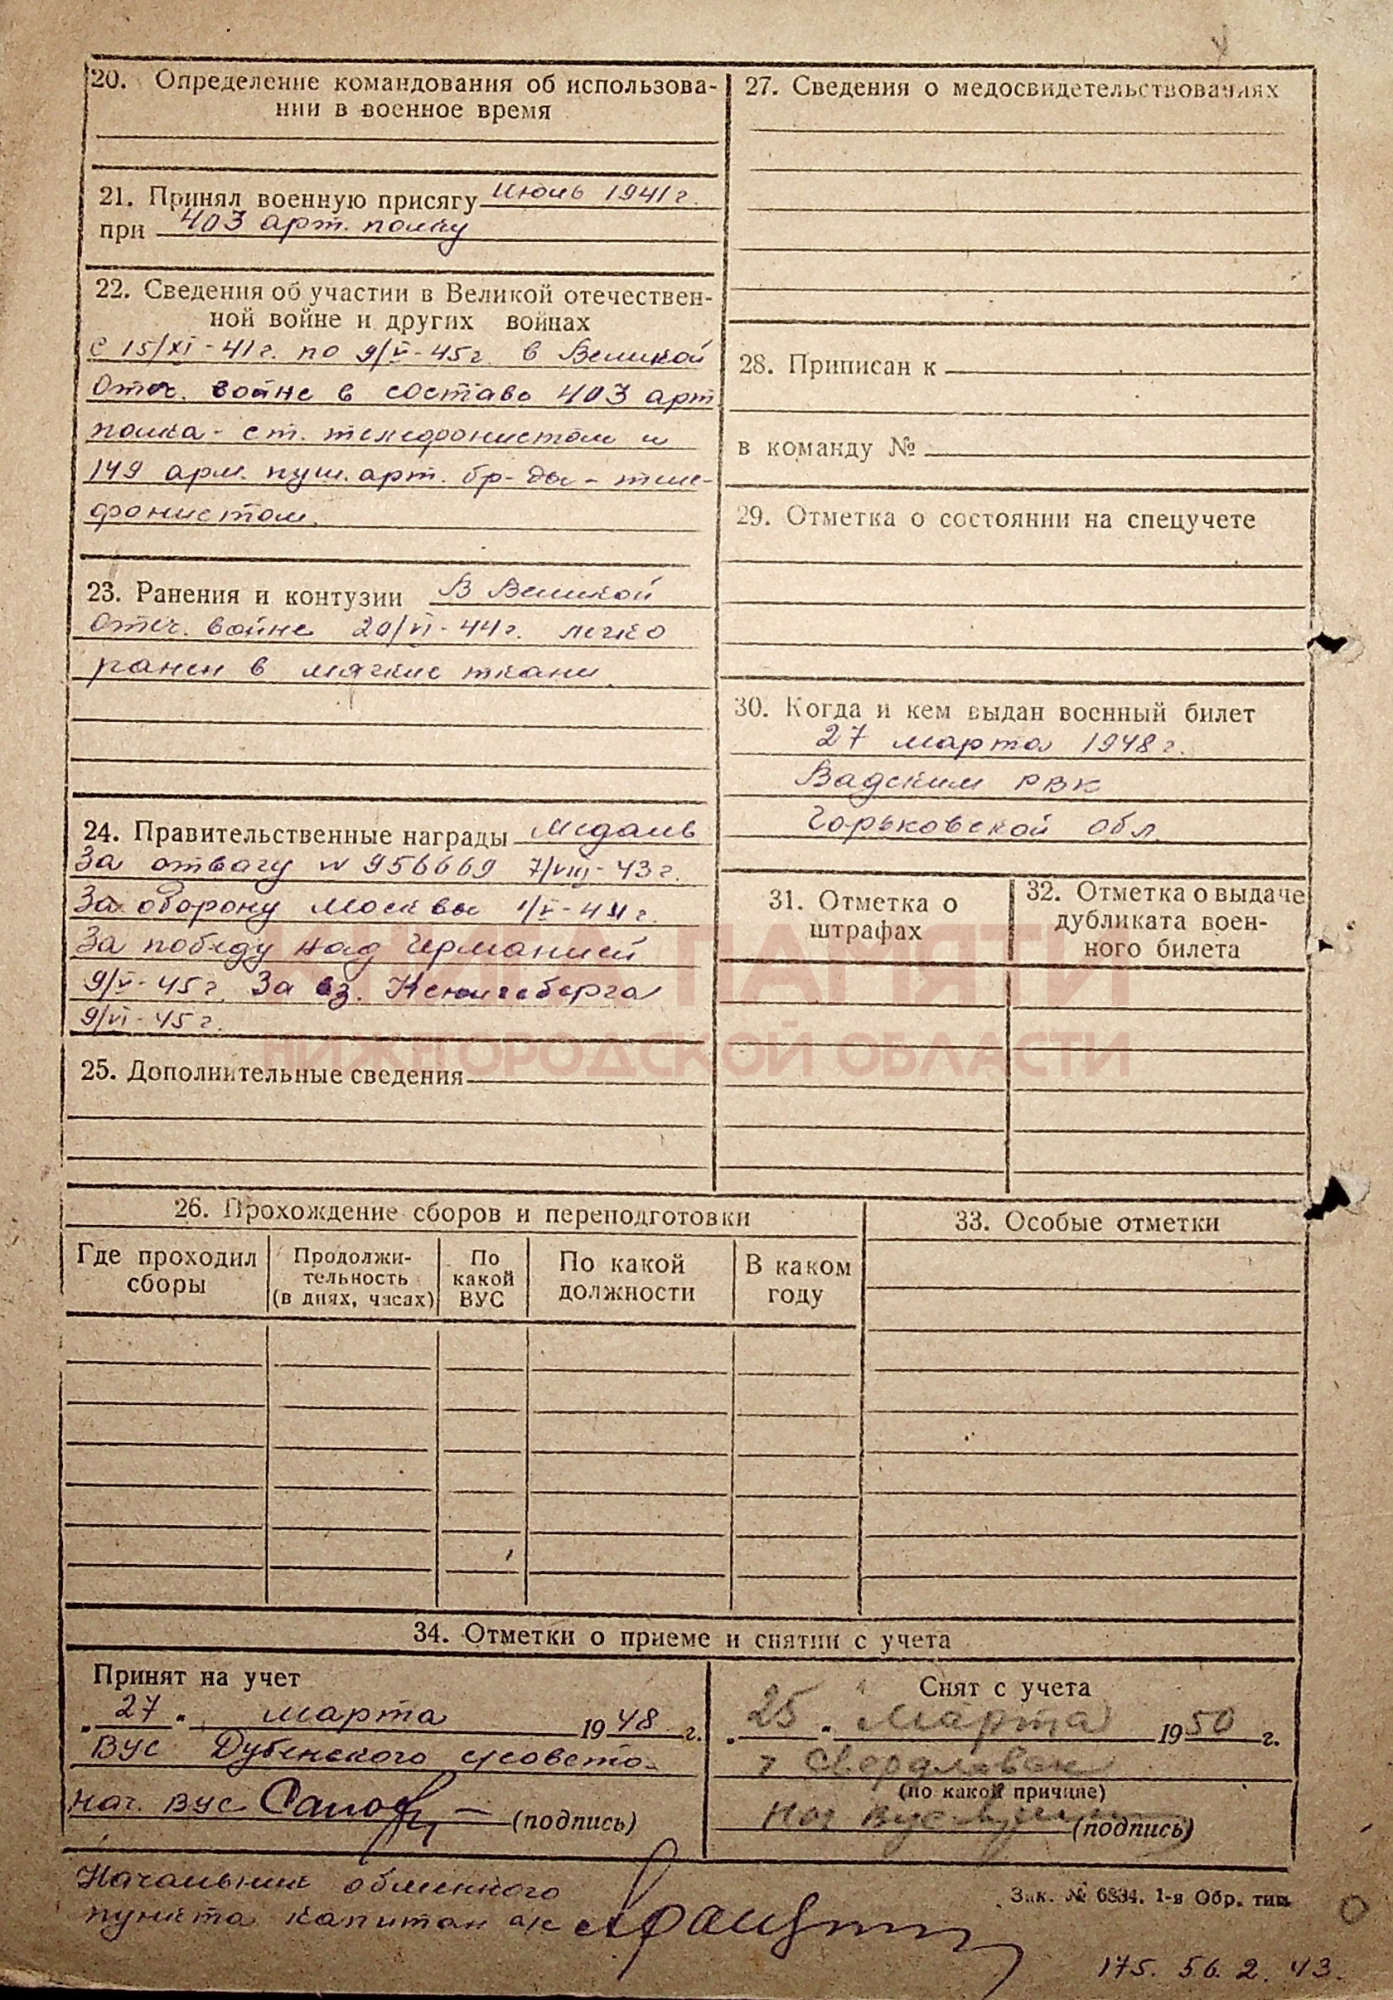 20. Определение командования об использова-
нии в военное время
21. Принял военную присягу Июль 1941 г.
при 403 арт. полку
22. Сведения об участии в Великой отечествен-
ной войне и других войнах
с 15/XI - 41 г. по 9/V - 45 г. в Великой
Отеч. войне в составе 403 арт
полка - ст. телефонистом и
149 арм. пуш. арт. бр-ды - теле-
фонистом.
23. Ранения и контузии В Великой
Отеч. войне 20/VI - 44 г. легко
ранен в мягкие ткани.
24. Правительственные награды Медаль
За отвагу № 956669 7/VIII - 43 г.
За оборону Москвы 1/V - 44 г.
За победу над Германией
9/V - 45 г. За вз. Кенигсберга
9/VI - 45 г.
25. Дополнительные сведения
27. Сведения о медосвидетельствованиях
28. Приписан к
в команду №
29. Отметка о состоянии на спецучете
30. Когда и кем выдан военный билет
27 марта 1948 г.
Вадским РВК
Горьковской обл.
31. Отметка о
штрафах
32. Отметка о выдаче
дубликата воен-
ного билета
КНИГА ПАМЯТИ
НИЖЕГОРОДСКОЙ ОБЛАСТИ
26. Прохождение сборов и переподготовки
Где проходил
сборы
Продолжи-
тельность
(в днях, часах)
По
какой
ВУС
По какой
должности
В каком
году
33. Особые отметки
34. Отметки о приеме и снятии с учета
Принят на учет
„27“ марта 1948 г.
ВУС Дубенского с/совета
Нач. ВУС (подпись)
Снят с учета
„25“ Марта 1950 г.
г Свердловск
(по какой причине)
Нач ВУС (подпись)
Начальник обменного
пункта капитан а/с
Зак. № 6834. 1-я Обр. тип.
175. 56. 2. 43.